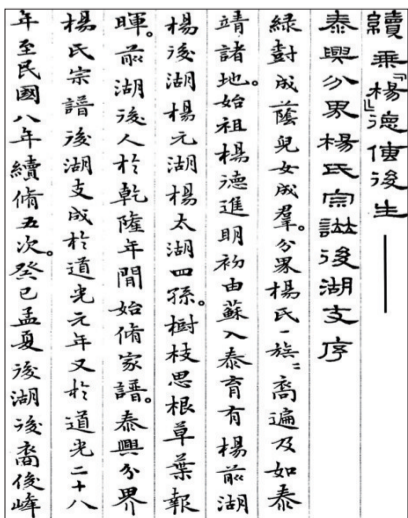 續乘『楊』德後生——
泰興分界楊氏宗譜後湖支序
綠樹成蔭兒女成羣。分界楊氏一族〻裔遍及如泰
靖諸地。始祖楊德進明初由蘇入泰育有楊前湖
楊後湖楊元湖楊太湖四孫。樹枝思根草葉報
暉。前湖後人於乾隆年間始脩家譜。泰興分界
楊氏宗譜後湖支成於道光元年又於道光二十八
年至民國八年續脩五次。癸巳孟夏後湖後裔俊峰